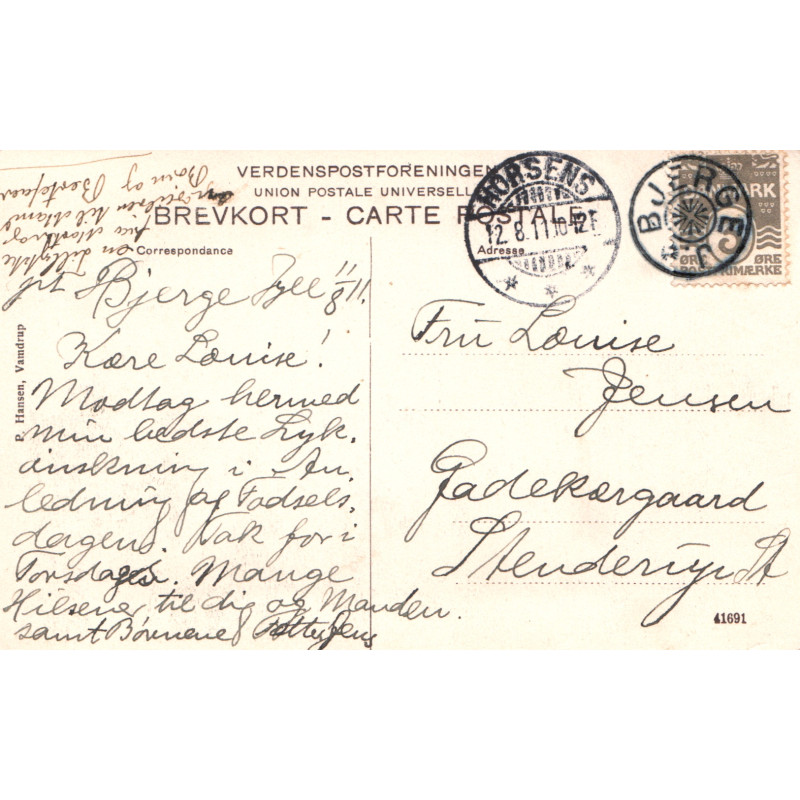 VERDENSPOSTFORENINGEN
UNION POSTALE UNIVERSELLE
BREVKORT - CARTE POSTALE
Correspondance
Adresse
HORSENS
12.8.11.10-12F
BJERGE
DANMARK
ØRE ØRE
FRIMÆRKE
P. Hansen, Vamdrup
pt Bjerge Jyll 11/8 11.
Kære Louise!
Modtag hermed
min bedste Lyk-
ønskning i An-
ledning af Fødsels-
dagen. Tak for i
Torsdags. Mange
Hilsener til dig og Manden.
samt Børnene Jens
en Lillykke
fra
Børn og
Fru Louise
Jensen
Gadekærgaard
Stenderup St
41691